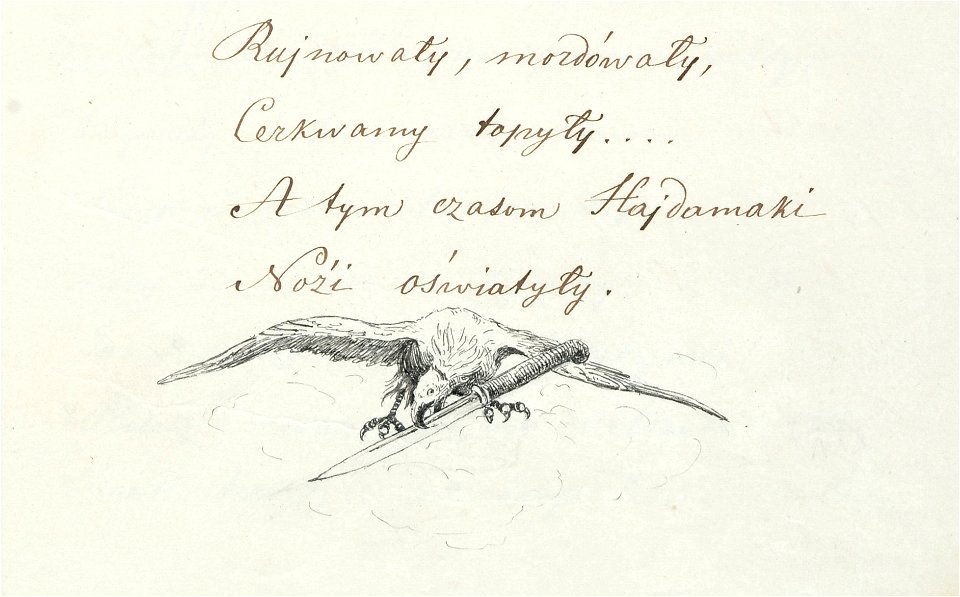 Rujnowały, mordówały,
Cerkwamy topyły....
A tym czasom Hajdamaki
Noźi oświatyły.